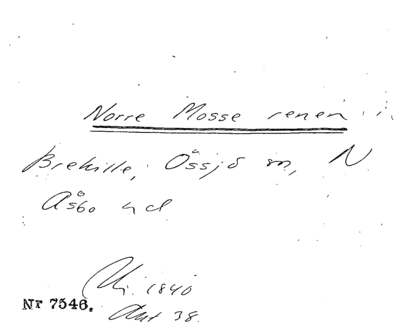 Norre Mosse renen
Brekille, Össjö sn, N
Åsbo hd
1840
Nr 7546.
38.